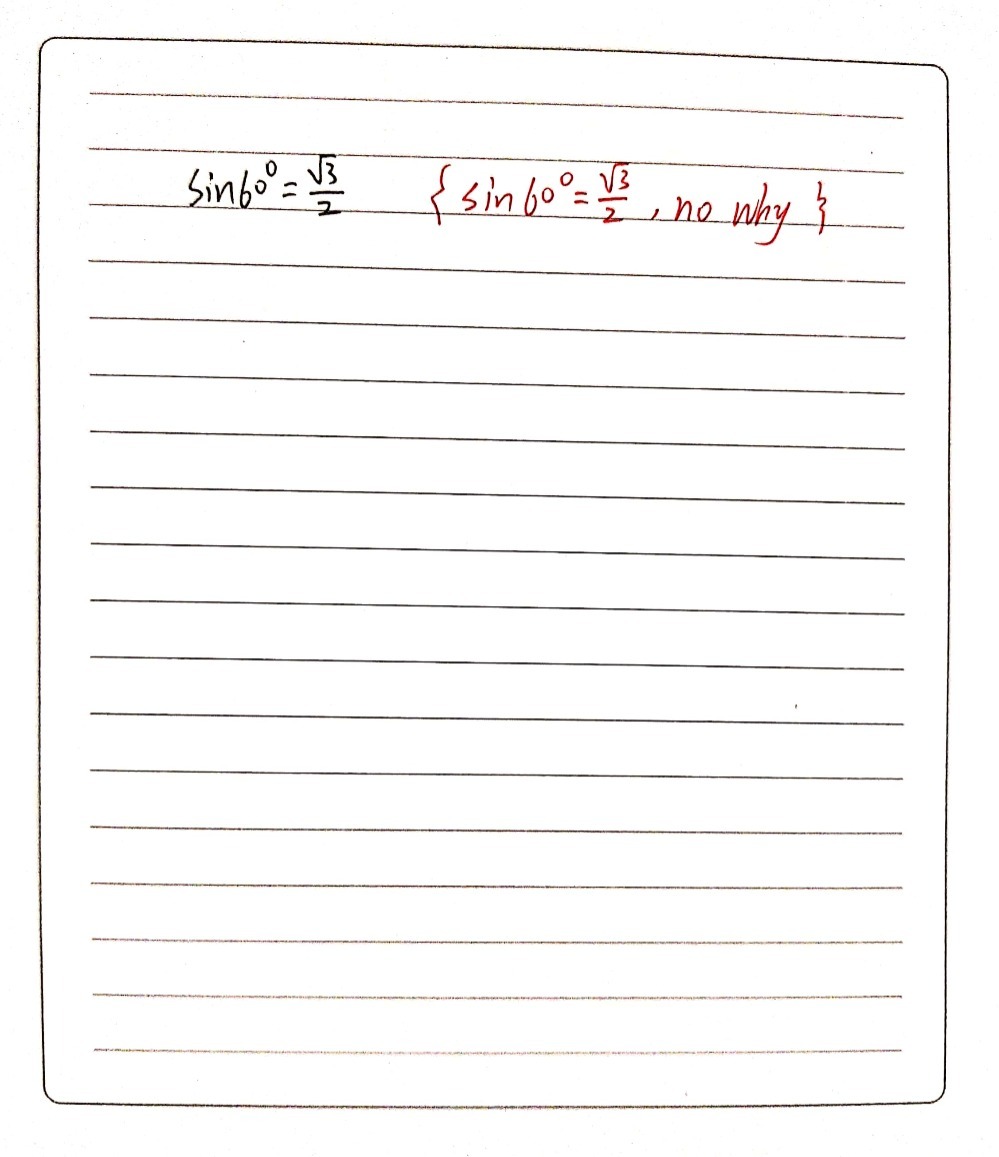 sin60° = √3/2 { sin60° = √3/2 , no why }